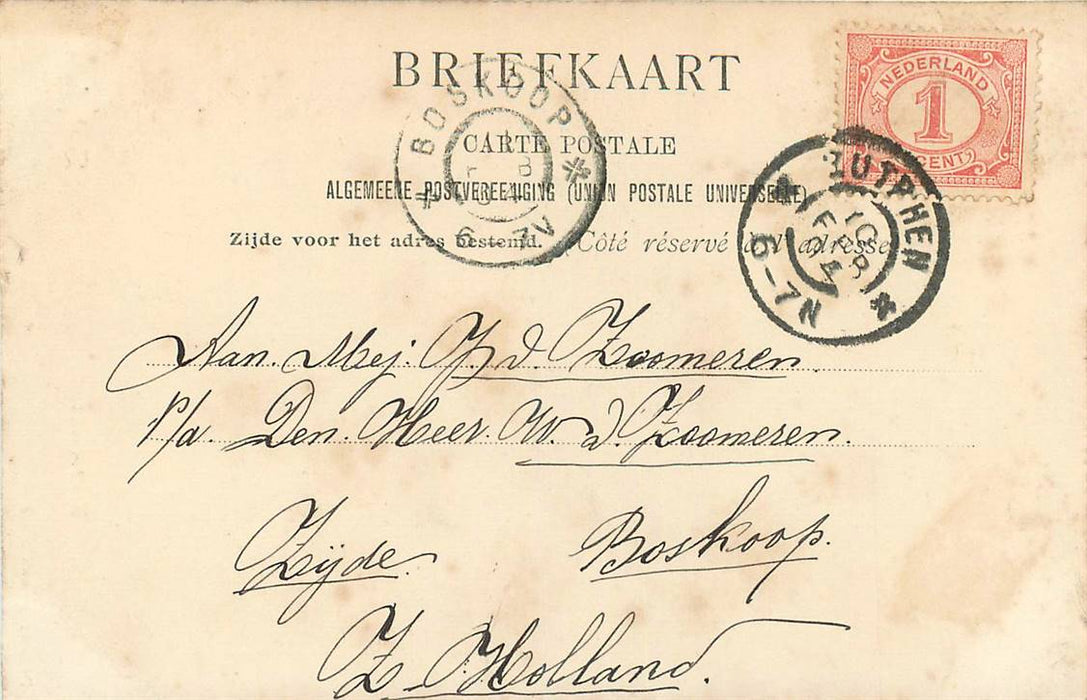 BRIEFKAART
CARTE POSTALE
ALGEMEENE POSTVEREENIGING (UNION POSTALE UNIVERSELLE)
Zijde voor het adres bestemd. (Côté réservé à l'adresse
NEDERLAND
1
CENT
BOSKOOP
ZUTPHEN
10
FEB
04
6-7N
Aan. Mej. v. Zoomeren.
P/a. Den. Heer. W. v. Zoomeren.
Zijde. Boskoop.
Z. Holland.